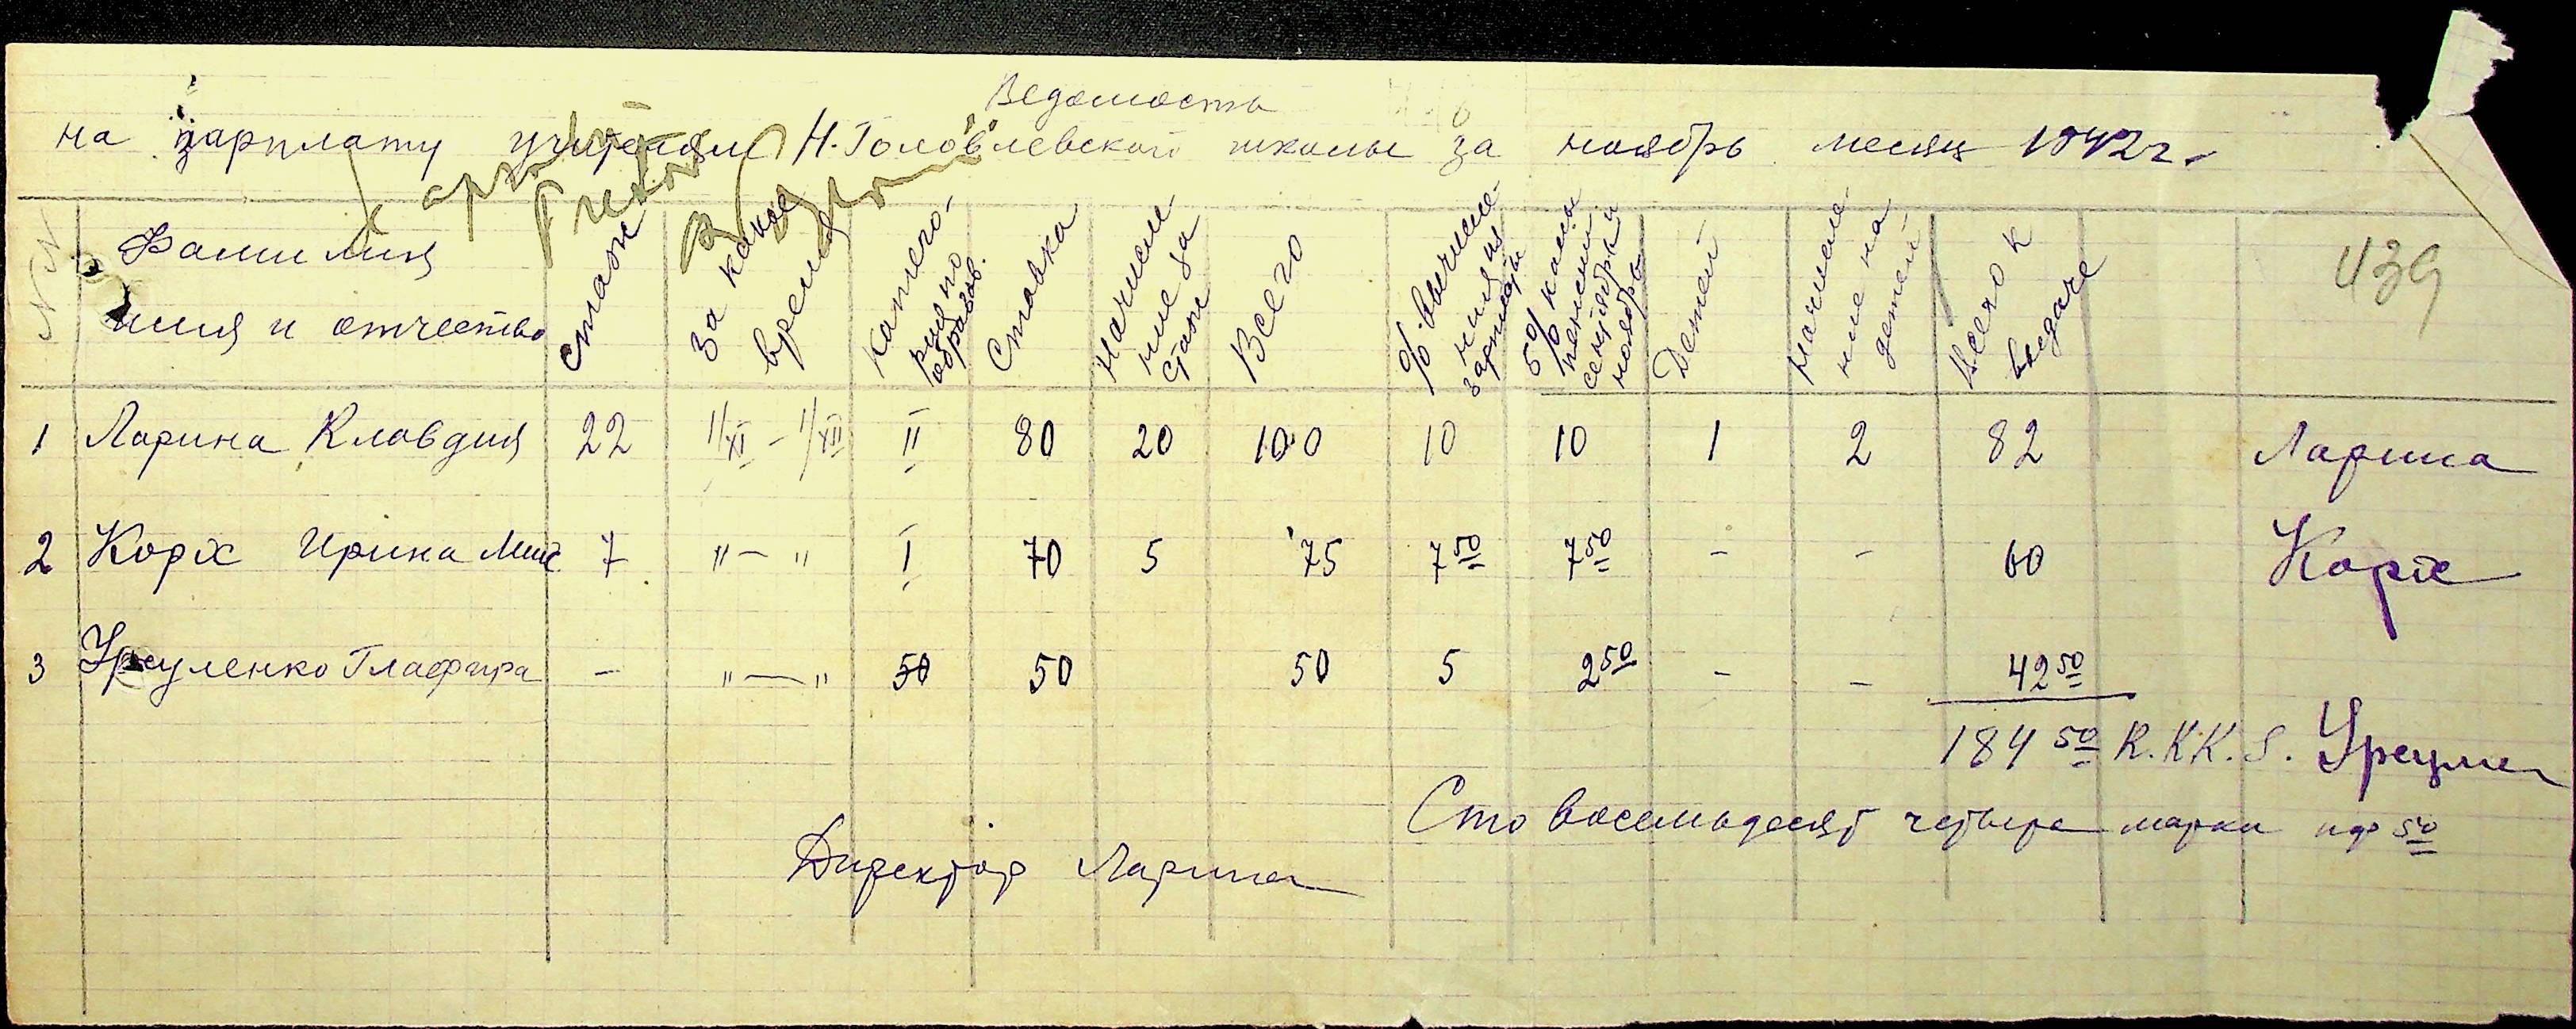 Ведомость
на зарплату учителям Н. Головлевской школы за ноябрь месяц 1942 г.
439
№№ Фамилия имя и отчество стаж За какое время Катего-рия по образов. Ставка Начисление за стаж Всего % вычисле-ния из зарплаты 5% кассы пенсии сентябрь и ноябрь Детей Начисле-ние на детей Всего к выдаче
1 Ларина Клавдия 22 1/XI – 1/XII II 80 20 100 10 10 1 2 82 Ларина
2 Корж Ирина Мих 7 " – " I 70 5 75 7 50 7 50 – – 60 Корж
3 Урсуленко Глафира – " — " 50 50 50 5 2 50 – – 42 50
184 50 R.K.K.S. Урсулен
Сто восемьдесят четыре марки пф 50
Директор Ларина